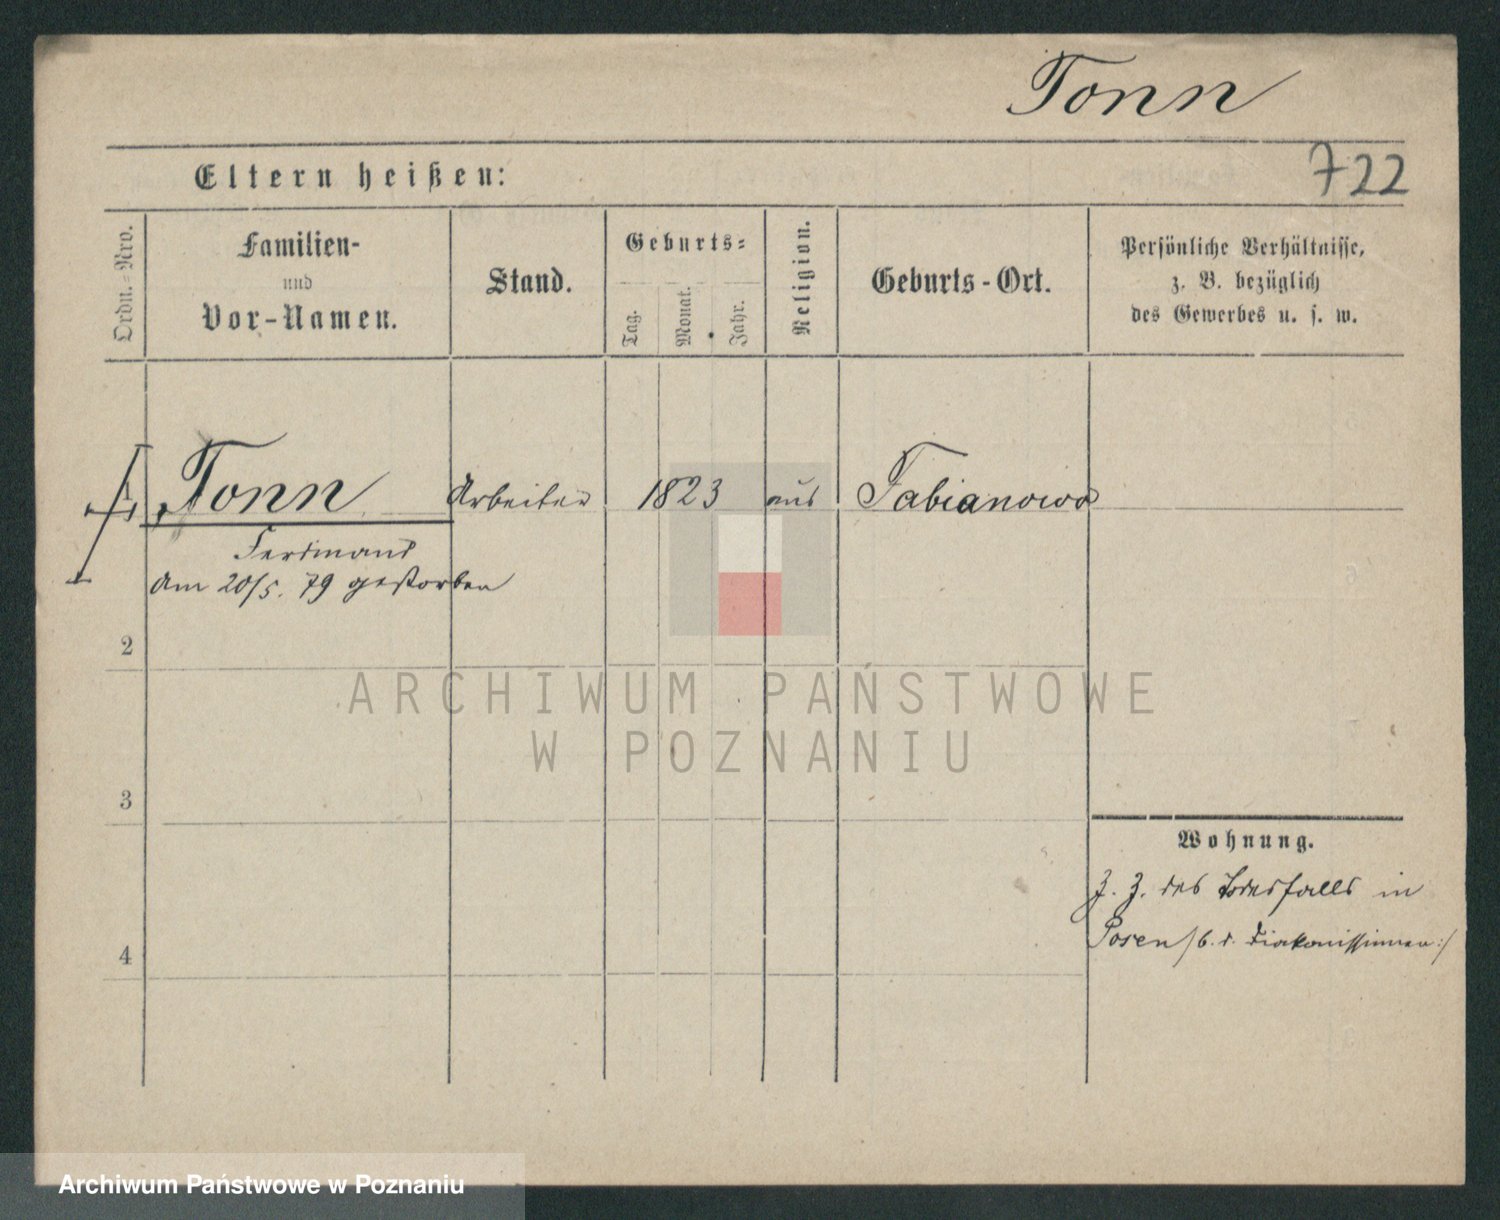 Tonn
722
Eltern heißen:
Ordn.-Nro.
Familien-
und
Vor-Namen.
Stand.
Geburts-
Tag.
Monat.
Jahr.
Religion.
Geburts-Ort.
Persönliche Verhältnisse,
z. B. bezüglich
des Gewerbes u. s. w.
1 Tonn Arbeiter 1823 aus Fabianowo
Ferdinand
am 20/5. 79 gestorben
2
ARCHIWUM PAŃSTWOWE
W POZNANIU
3
Wohnung.
z. Z. des Todesfalls in
Posen /b. d. Diakonissinnen:/
4
Archiwum Państwowe w Poznaniu